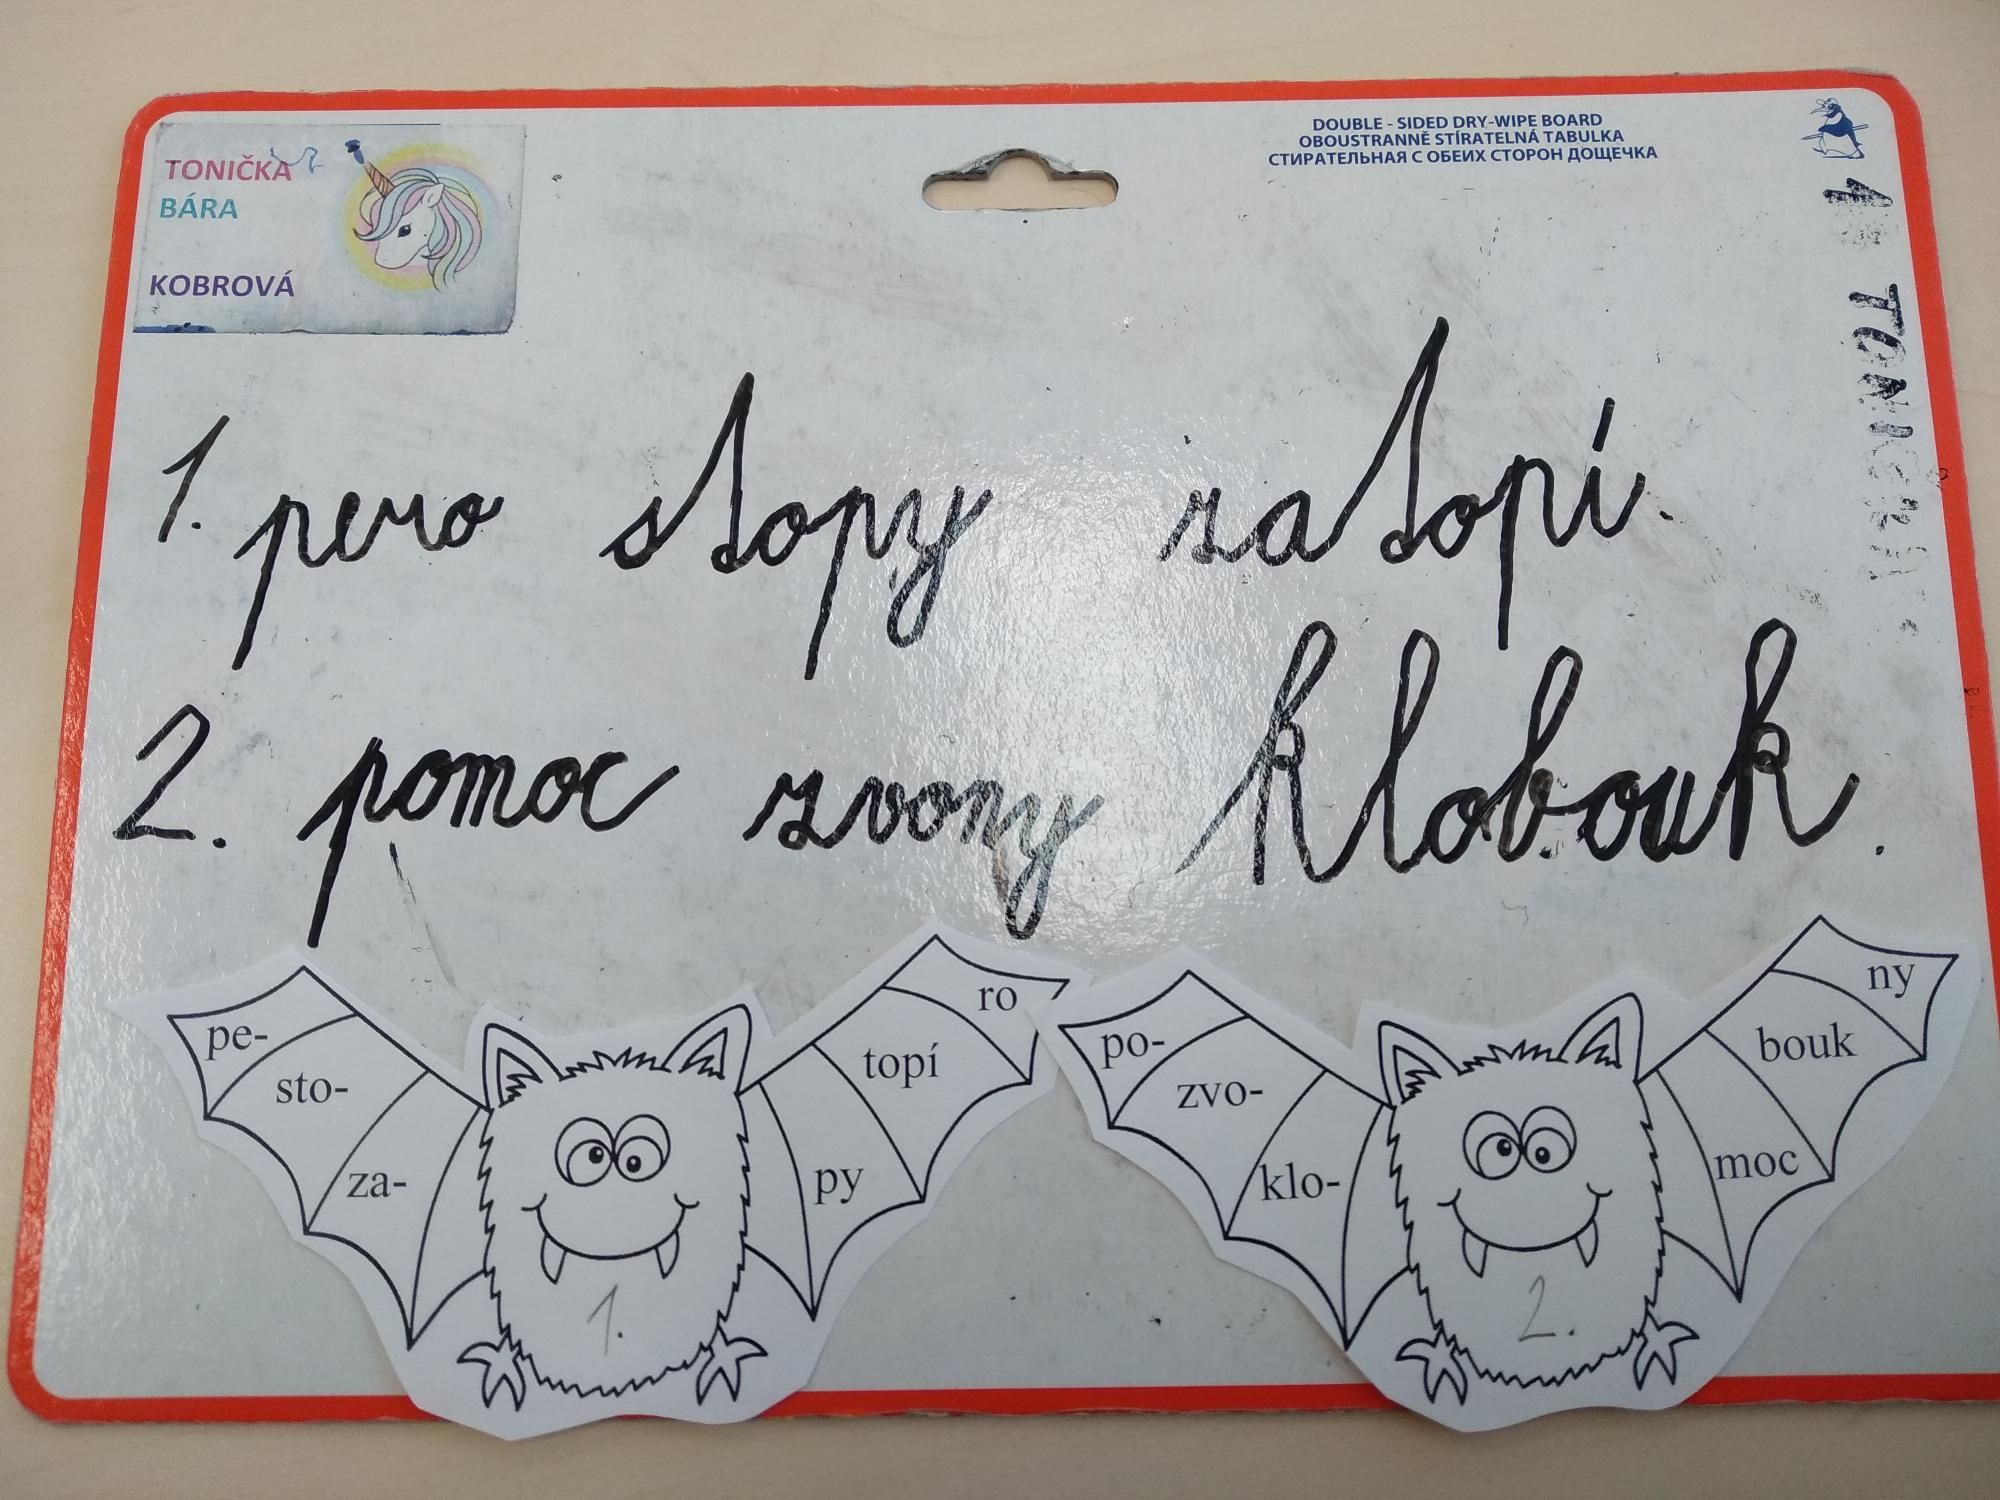 DOUBLE - SIDED DRY-WIPE BOARD
OBOUSTRANNĚ STÍRATELNÁ TABULKA
СТИРАТЕЛЬНАЯ С ОБЕИХ СТОРОН ДОЩЕЧКА
TONIČKA
BÁRA
KOBROVÁ
1. pero stopy zatopí.
2. pomoc zvony klobouk.
pe-
sto-
za-
ro
topí
py
1.
po-
zvo-
klo-
ny
bouk
moc
2.